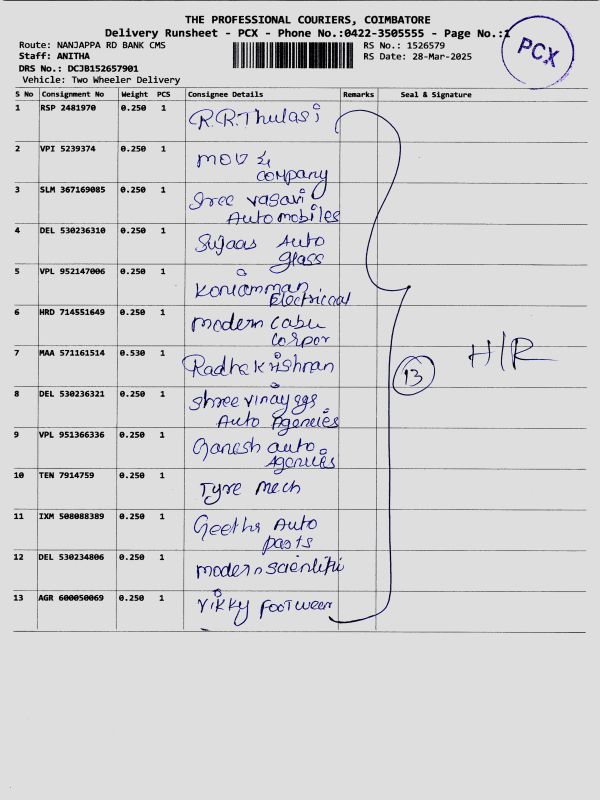 THE PROFESSIONAL COURIERS, COIMBATORE
Delivery Runsheet - PCX - Phone No.:0422-3505555 - Page No.:1
PCX
Route: NANJAPPA RD BANK CMS
RS No.: 1526579
Staff: ANITHA
RS Date: 28-Mar-2025
DRS No.: DCJB152657901
Vehicle: Two Wheeler Delivery
S No Consignment No Weight PCS Consignee Details Remarks Seal & Signature
1 RSP 2481970 0.250 1 R.R.Thulasi
2 VPI 5239374 0.250 1 mov &
company
3 SLM 367169085 0.250 1 Sree vasavi
Automobiles
4 DEL 530236310 0.250 1 Sujaas Auto
glass
5 VPL 952147006 0.250 1 Koniamman
Electricaal
6 HRD 714551649 0.250 1 modern cabu
Corpor
7 MAA 571161514 0.530 1 Radha Krishnan
8 DEL 530236321 0.250 1 Shree
Auto Agencies
9 VPL 951366336 0.250 1 Ganesh auto
Agencies
10 TEN 7914759 0.250 1 Tyre mech
11 IXM 508088389 0.250 1 Geetha Auto
parts
12 DEL 530234806 0.250 1 modern
13 AGR 600050069 0.250 1 Vikky Footwear
13
H/R